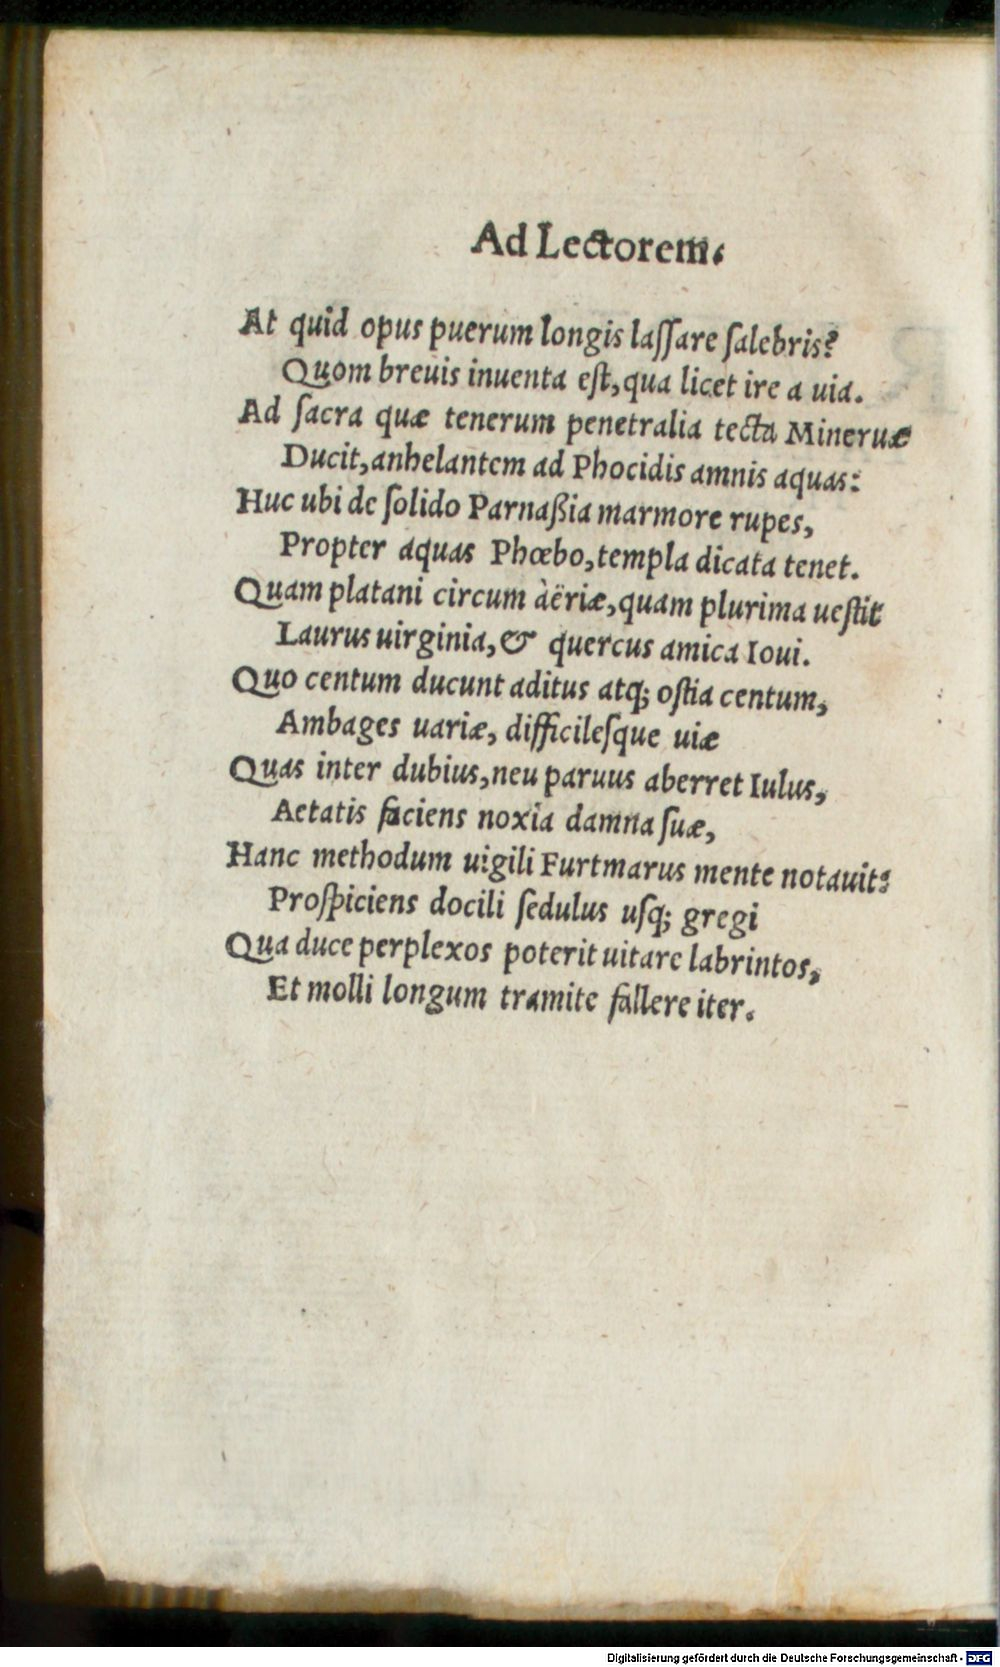 Ad Lectorem.
At quid opus puerum longis laſſare ſalebris?
Quom breuis inuenta eſt, qua licet ire a uia.
Ad ſacra quæ tenerum penetralia tecta Mineruæ
Ducit, anhelantem ad Phocidis amnis aquas:
Huc ubi de ſolido Parnaßia marmore rupes,
Propter aquas Phœbo, templa dicata tenet.
Quam platani circum àëriæ, quam plurima ueſtit
Laurus uirginia, & quercus amica Ioui.
Quo centum ducunt aditus atq; oſtia centum,
Ambages uariæ, difficileſque uiæ
Quas inter dubius, neu paruus aberret Iulus,
Aetatis faciens noxia damna ſuæ,
Hanc methodum uigili Furtmarus mente notauit:
Proſpiciens docili ſedulus uſq; gregi
Qua duce perplexos poterit uitare labrintos,
Et molli longum tramite fallere iter.
Digitalisierung gefördert durch die Deutsche Forschungsgemeinschaft - DFG